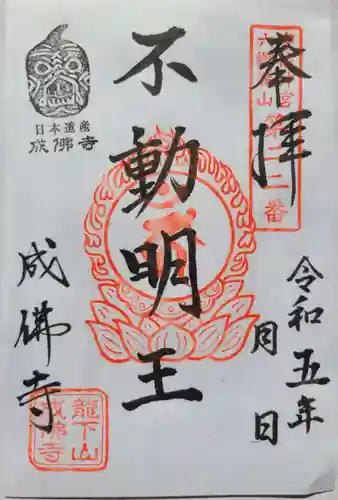 奉拝
第二十二番
令和五年
月 日
不動明王
日本遺産
成佛寺
成佛寺
龍下山
成佛寺